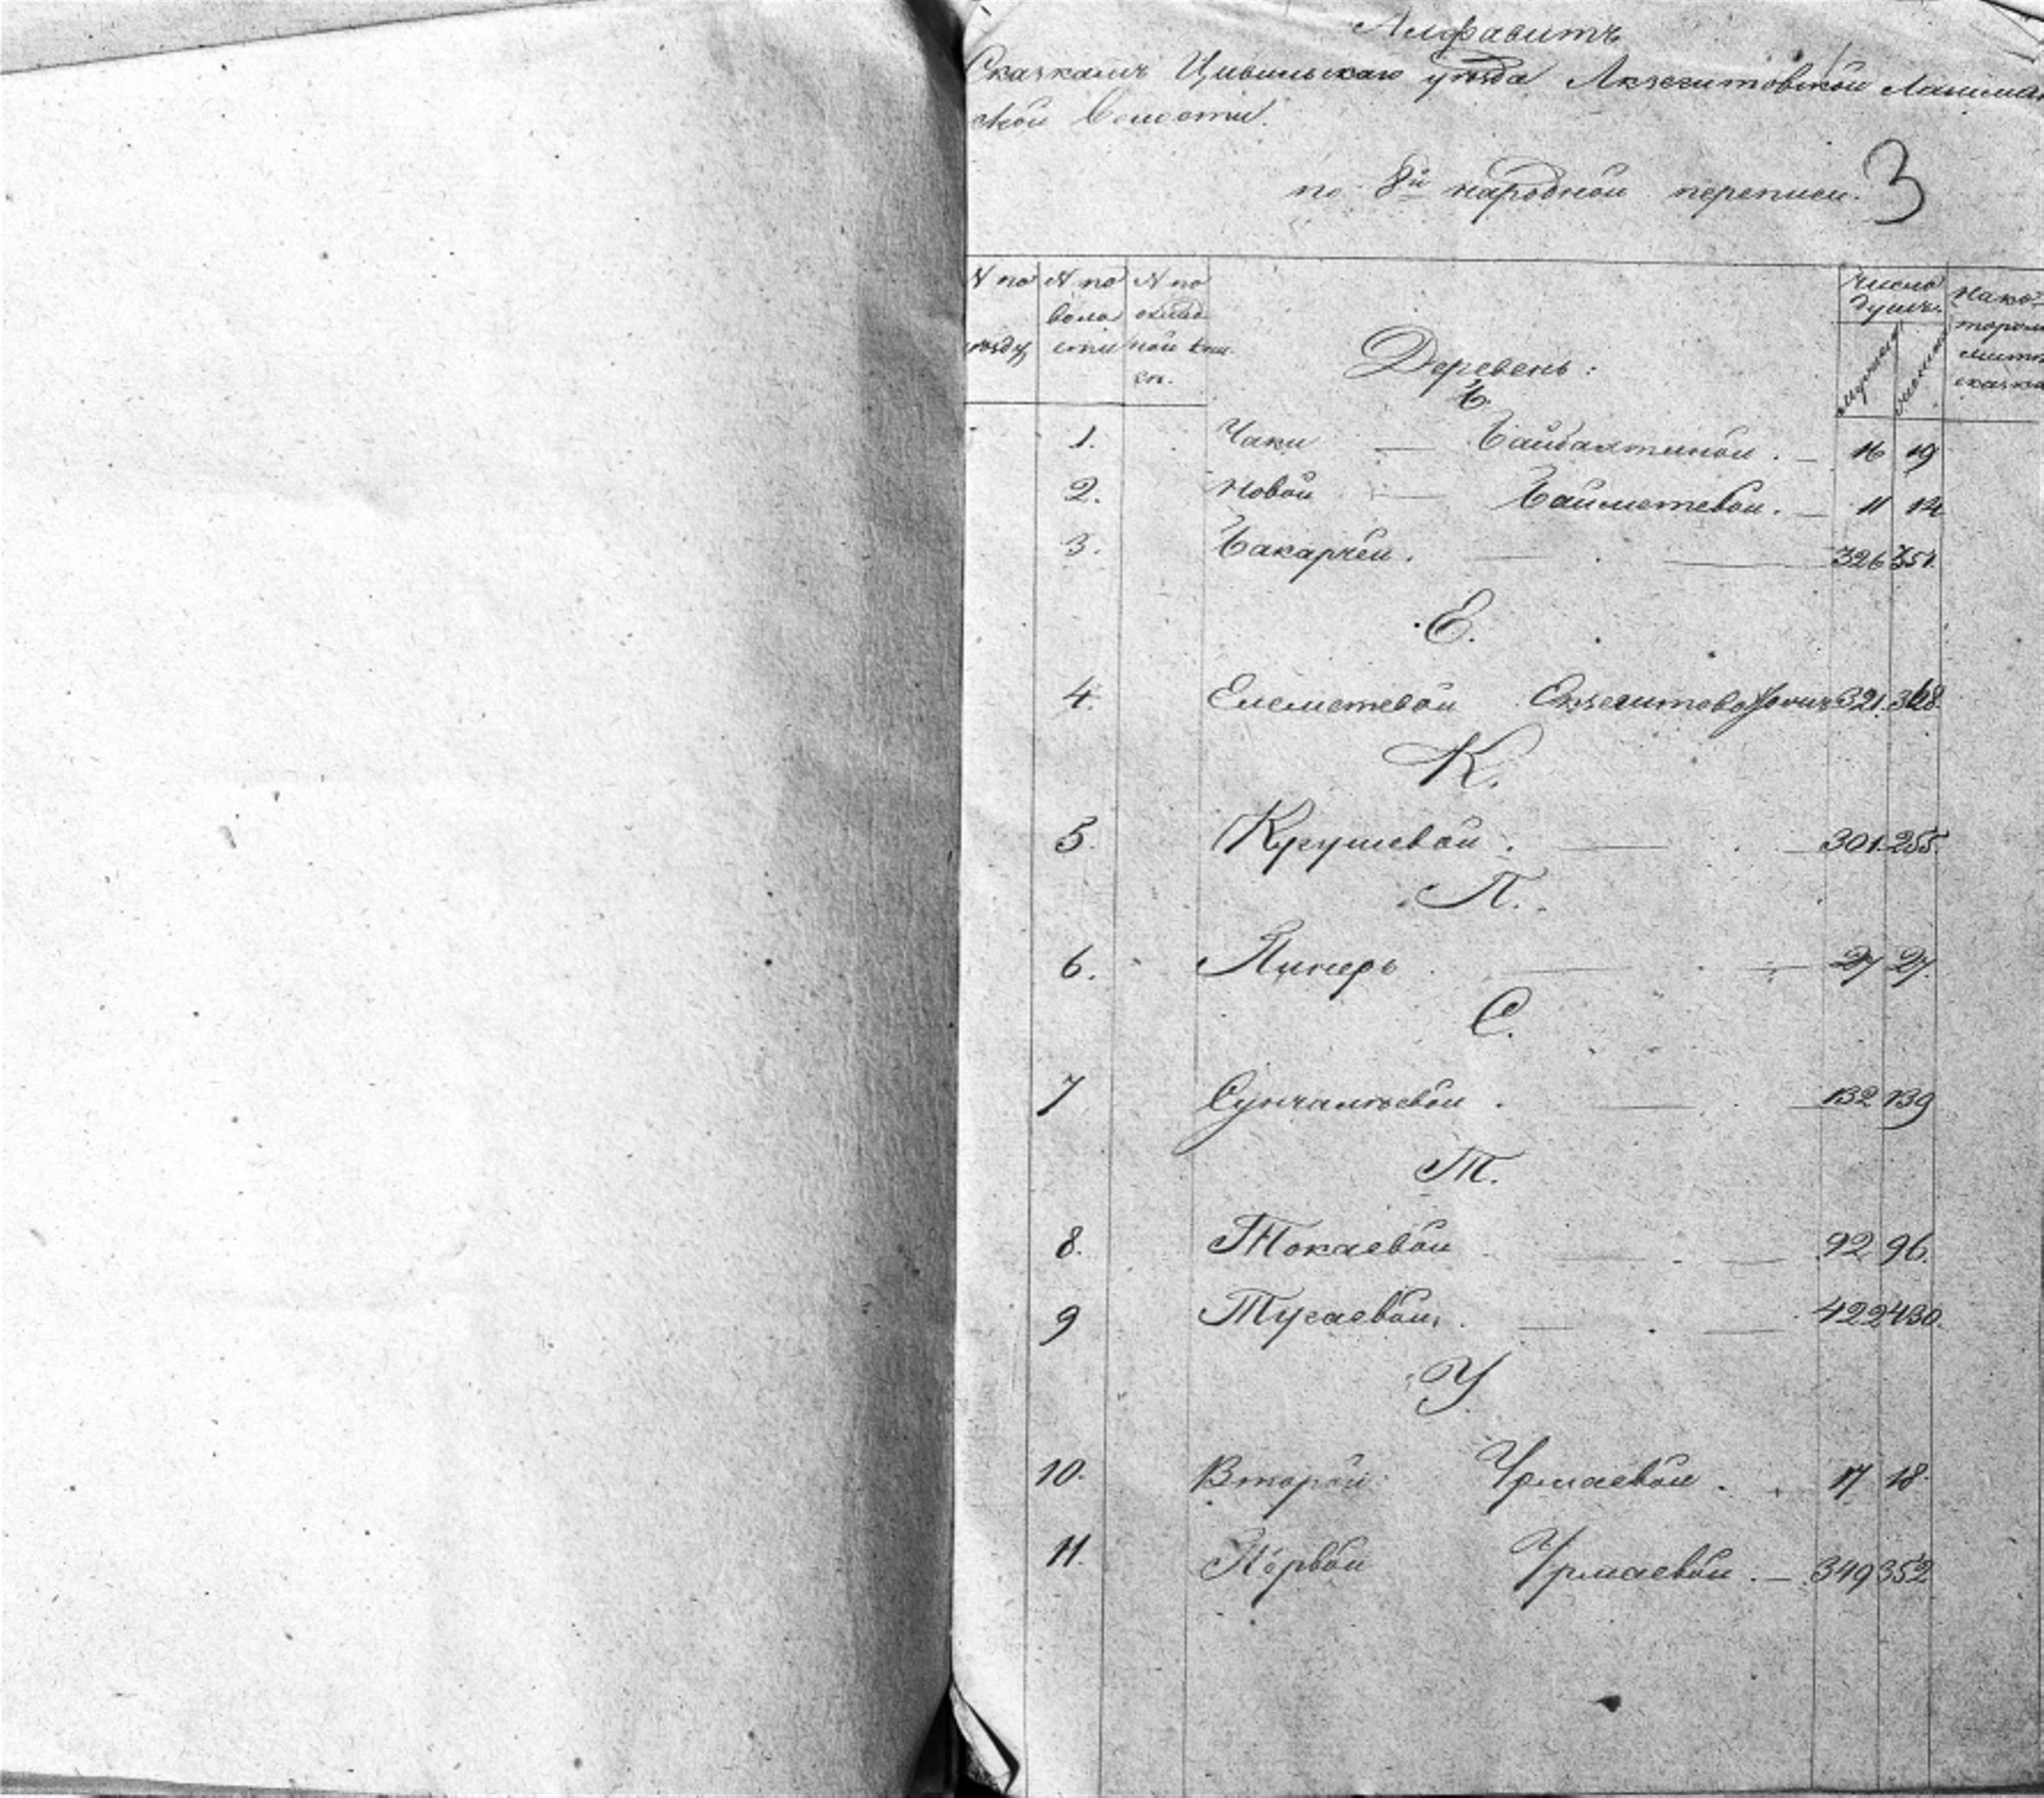 Алфавитъ
Сказкамъ Цивильскаго уѣзда Акзегитовской Лашман
ской Волости.
по 8й народной переписи. 3
N по уѣзду N по воло сти N по оклад ной кни. ги. Деревень: Число душъ. мужеска женска На ко тором листѣ сказка
Б.
1. Чаки — Байбахтиной. — 16 19
2. Новой — Байметевой. — 11 14
3. Бакарчеи. — 326 351.
Е.
4. Елеметевой Екзегитово 321. 368
К.
5. Кугушевой. — 301. 255.
П.
6. Пинерь — 27 27.
С.
7 Сунчалѣевой. — 132 139
Т.
8. Токаевой — 92 96.
9 Тугаевой. — 422 430.
У
10. Второй Урмаевой. 17 18.
11. Первой Урмаевой. — 349 352